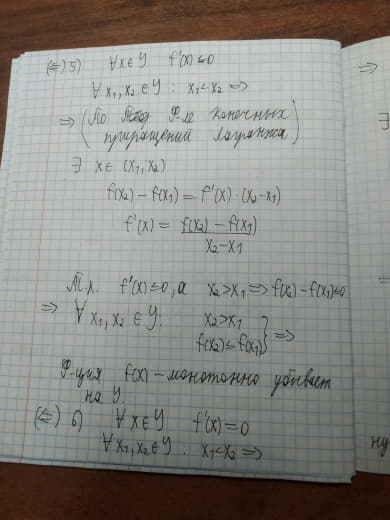 (⇐) 5) ∀x∈Y f'(x)≤0
∀ x₁, x₂ ∈ Y : x₁<x₂ ⇒
⇒ (По Ф-ле конечных
приращений Лагранжа)
∃ x ∈ (x₁, x₂)
f(x₂) – f(x₁) = f'(x) · (x₂-x₁)
f'(x) = f(x₂) – f(x₁)
x₂-x₁
Т.к. f'(x)≤0, а x₂>x₁ ⇒ f(x₂)-f(x₁)≤0
⇒ ∀ x₁, x₂ ∈ Y: x₂>x₁
f(x₂)≤f(x₁) } ⇒
Ф-ция f(x) – монотонно убывает
на Y.
(⇐) 6) ∀ x∈Y f'(x)=0
∀ x₁, x₂∈Y : x₁<x₂ ⇒
⇒
∃
=
ну